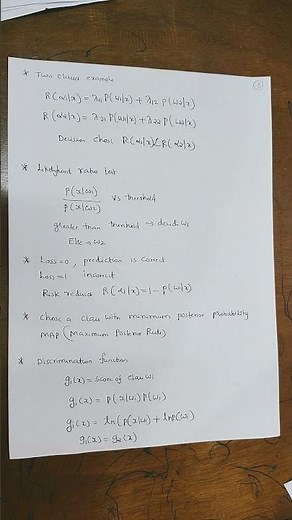 * Two class example
R(α1|x) = λ11 P(ω1|x) + λ12 P(ω2|x)
R(α2|x) = λ21 P(ω1|x) + λ22 P(ω2|x)
Decision chose R(α1|x) < R(α2|x)
* Likelyhood ratio test
P(x|ω1) / P(x|ω2) vs threshold
greater than threshold → decide ω1
Else → ω2
* Loss=0, prediction is correct
Loss=1 incorrect
Risk reduces R(αi|x) = 1 - P(ωi|x)
* Chose a class with minimum posterior probability
MAP (Maximum Posterior Rule)
* Discrimination function
gi(x) = score of class ωi
gi(x) = P(x|ωi) P(ωi)
gi(x) = ln(P(x|ωi) + ln P(ωi)
g1(x) = g2(x)